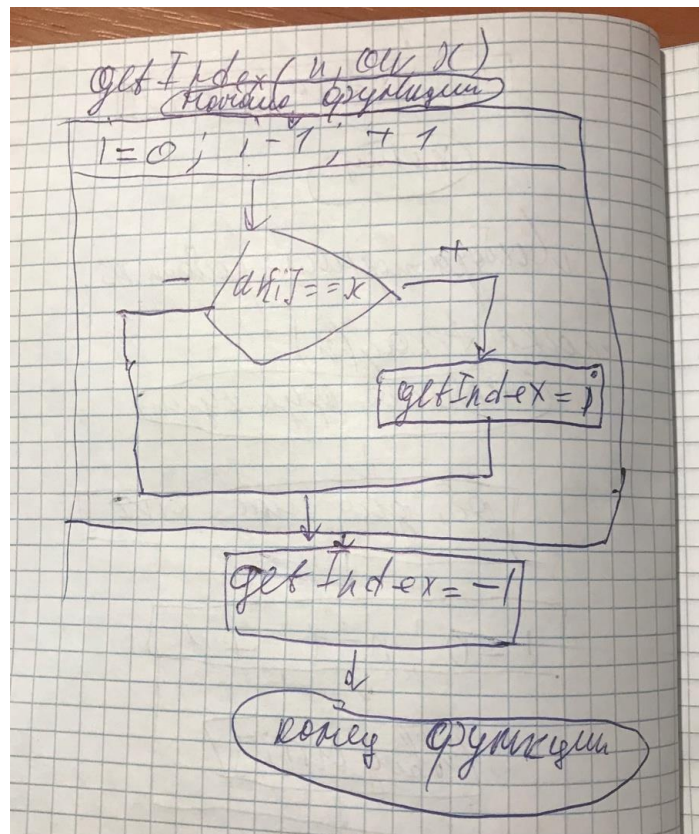 getIndex(n, arr, x)
начало функции
i=0; i-1; +1
- +
arr[i]==x
getIndex=i
getIndex=-1
конец функции